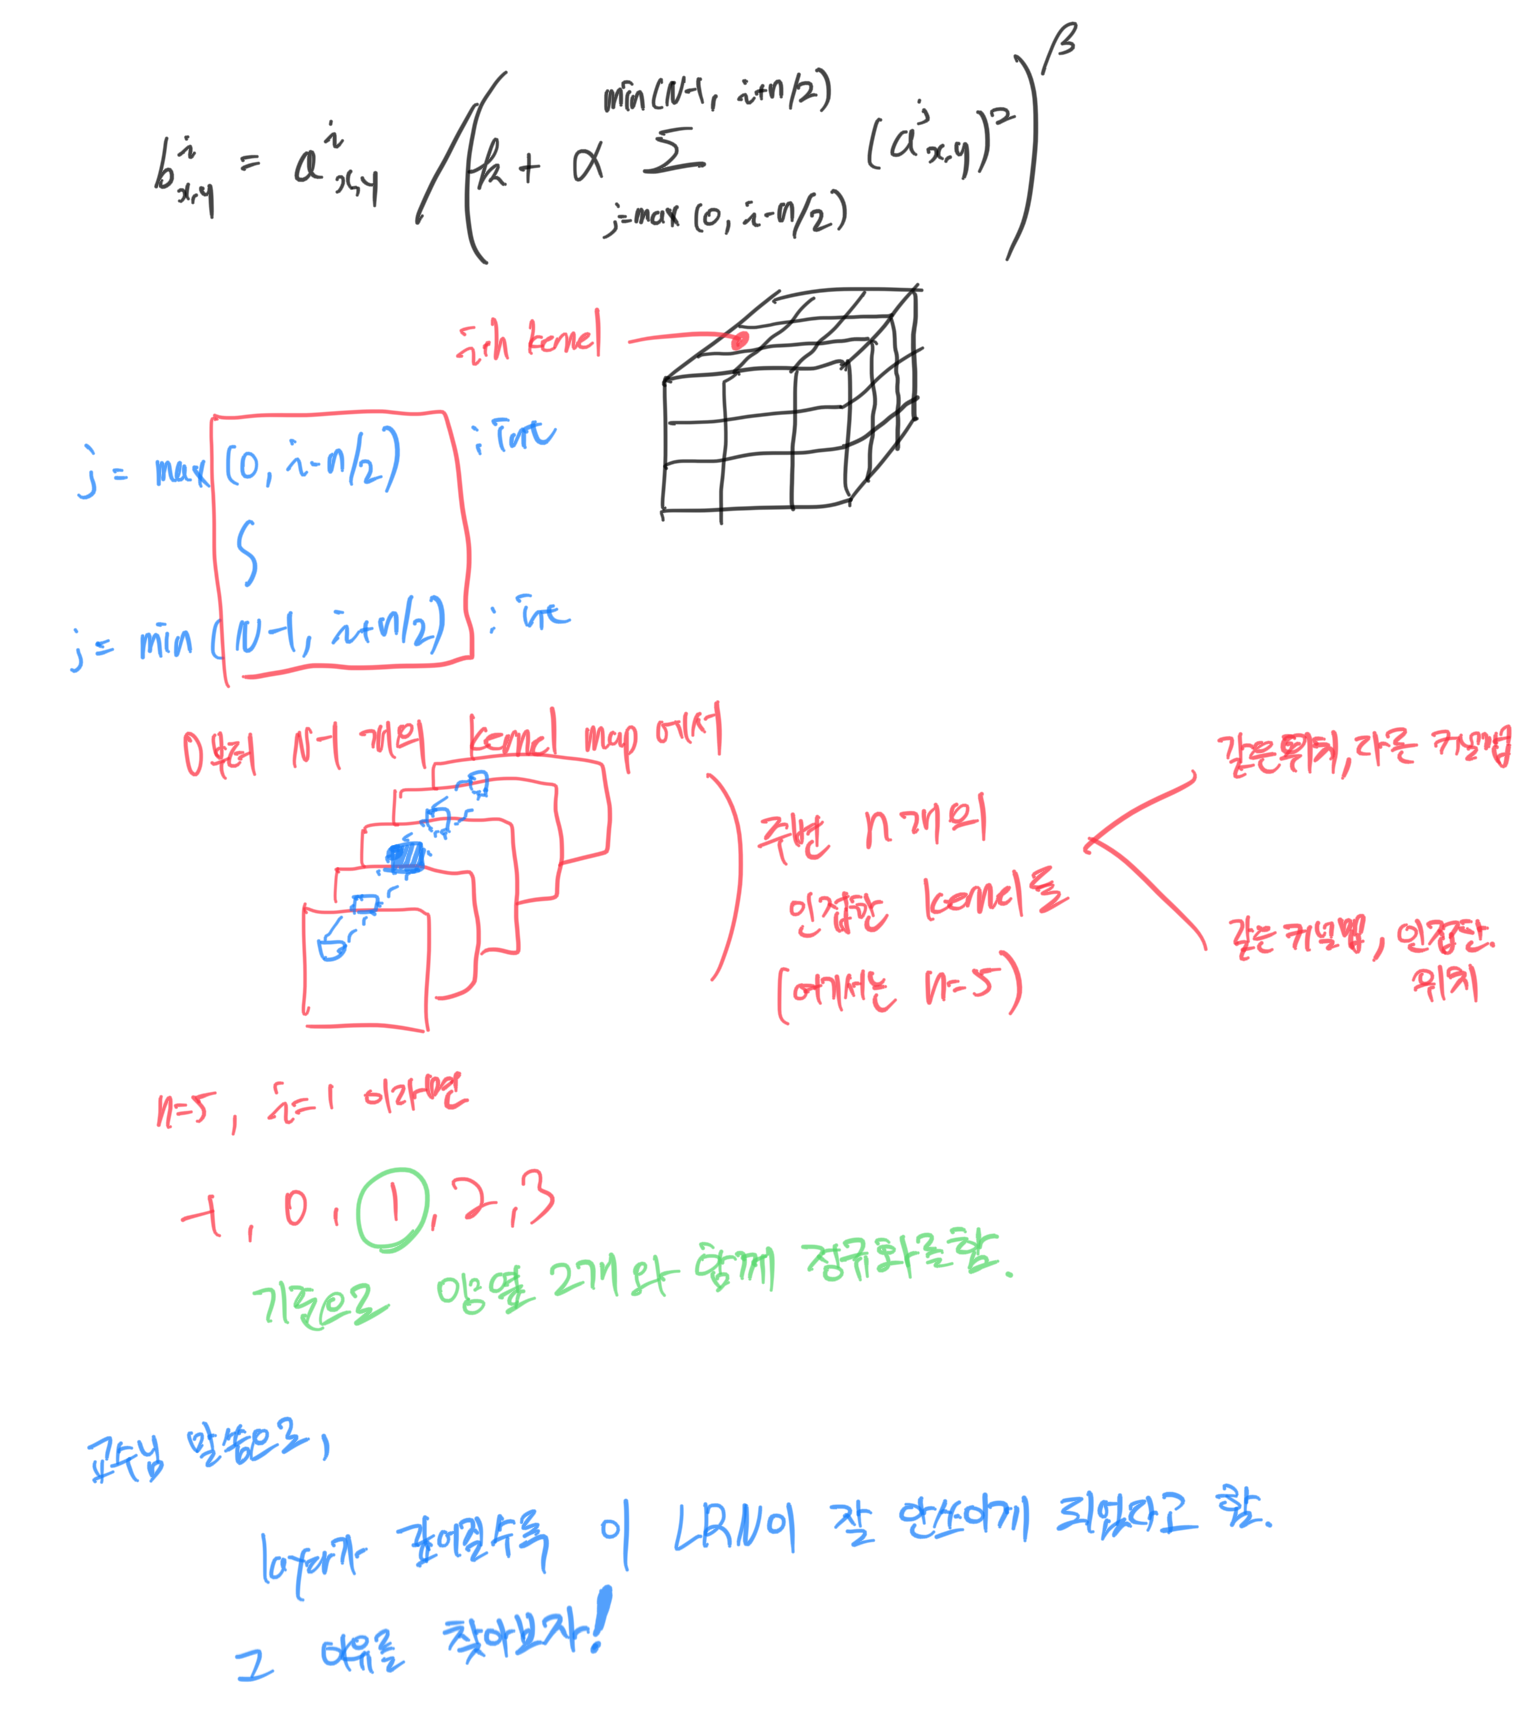 b^i_{x,y} = a^i_{x,y} / ( k + α Σ_{j=max(0, i-n/2)}^{min(N-1, i+n/2)} (a^j_{x,y})^2 )^β
ith kernel
j = max (0, i-n/2) : int
j = min (N-1, i+n/2) : int
0부터 N-1 개의 kernel map 에서
주변 n개의
인접한 kernel들
(여기서는 n=5)
같은위치, 다른 커널맵
같은 커널맵, 인접한
위치
n=5, i=1 이라면
-1, 0, 1, 2, 3
기준으로 양옆 2개와 함께 정규화를함.
교수님 말씀으로,
layer가 깊어질수록 이 LRN이 잘 안쓰이게 되었다고 함.
그 이유를 찾아보자!